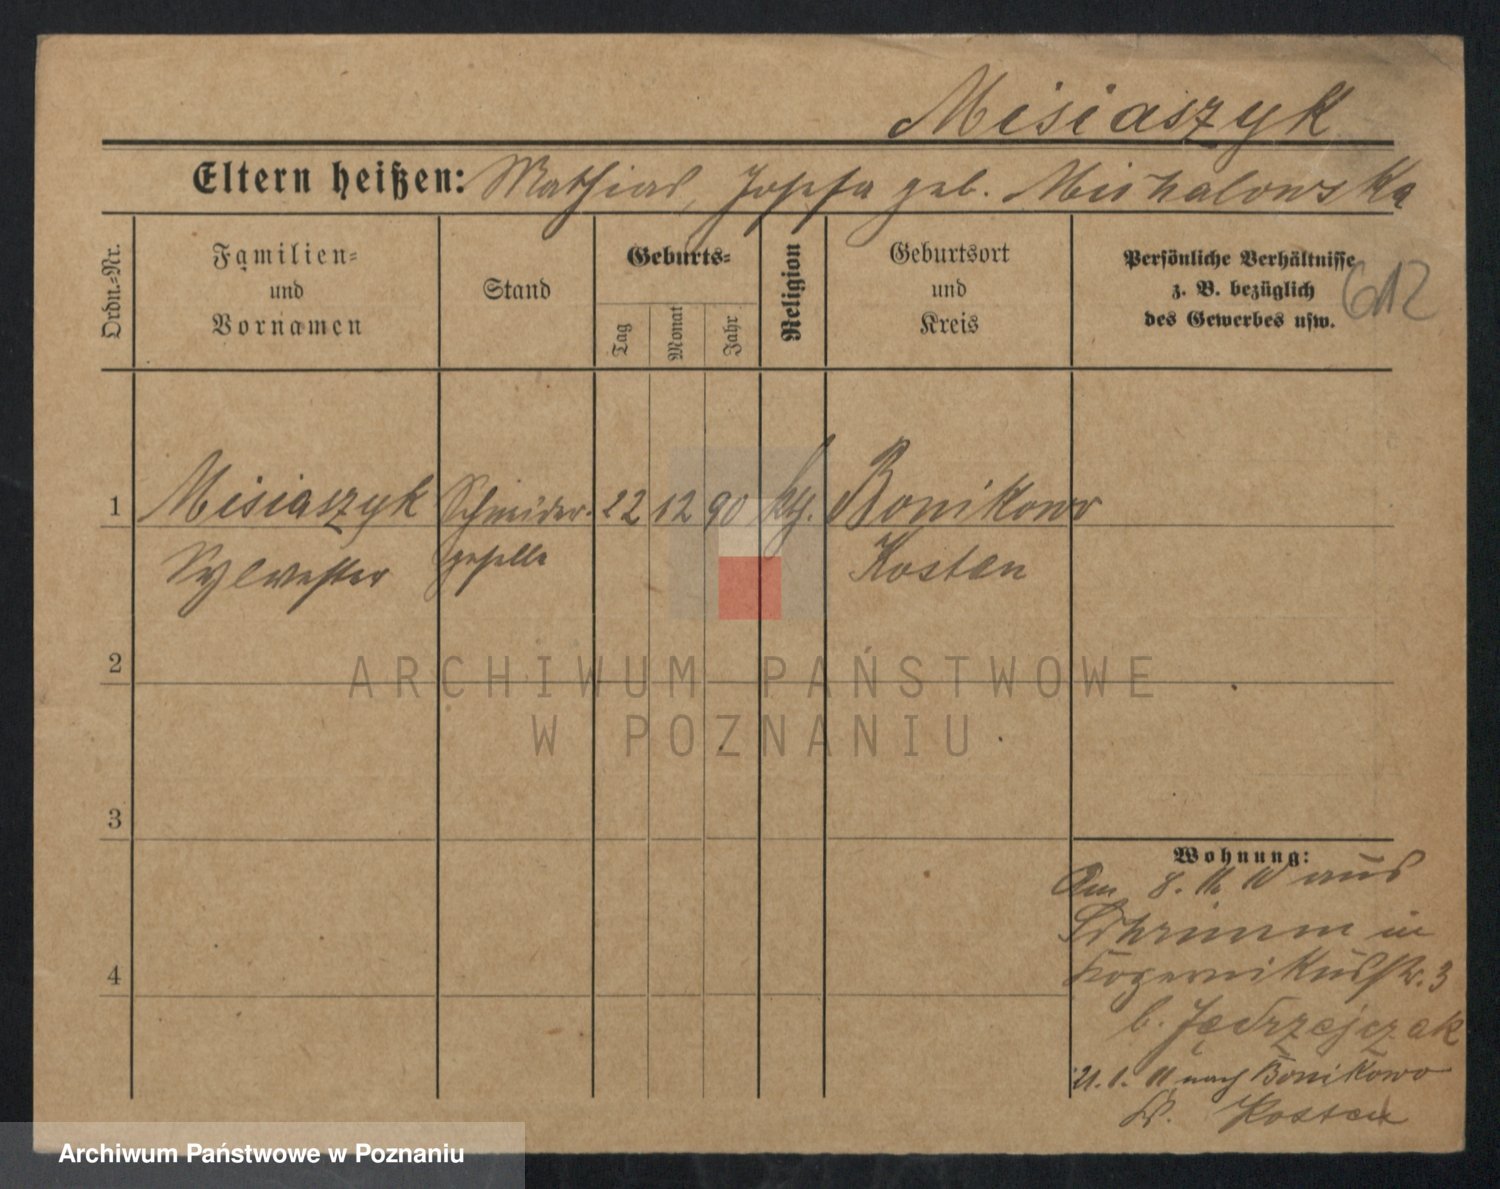 Misiaszyk
Eltern heißen: Mathias, Josefa geb. Michalowska
Ordn.-Nr.
Familien-
und
Vornamen
Stand
Geburts-
Tag
Monat
Jahr
Religion
Geburtsort
und
Kreis
Persönliche Verhältnisse
z. B. bezüglich
des Gewerbes usw.
612
1 Misiaszyk Schneider- 22 12 90 kth. Bonikowo
Sylvester geselle Kosten
2
ARCHIWUM PAŃSTWOWE
W POZNANIU
3
Wohnung:
Am 8. 11. 10 aus
Schrimm in
Kopernikusstr. 3
b. Jędrzejczak
21. 1. 11 nach Bonikowo
Kr. Kosten
4
Archiwum Państwowe w Poznaniu